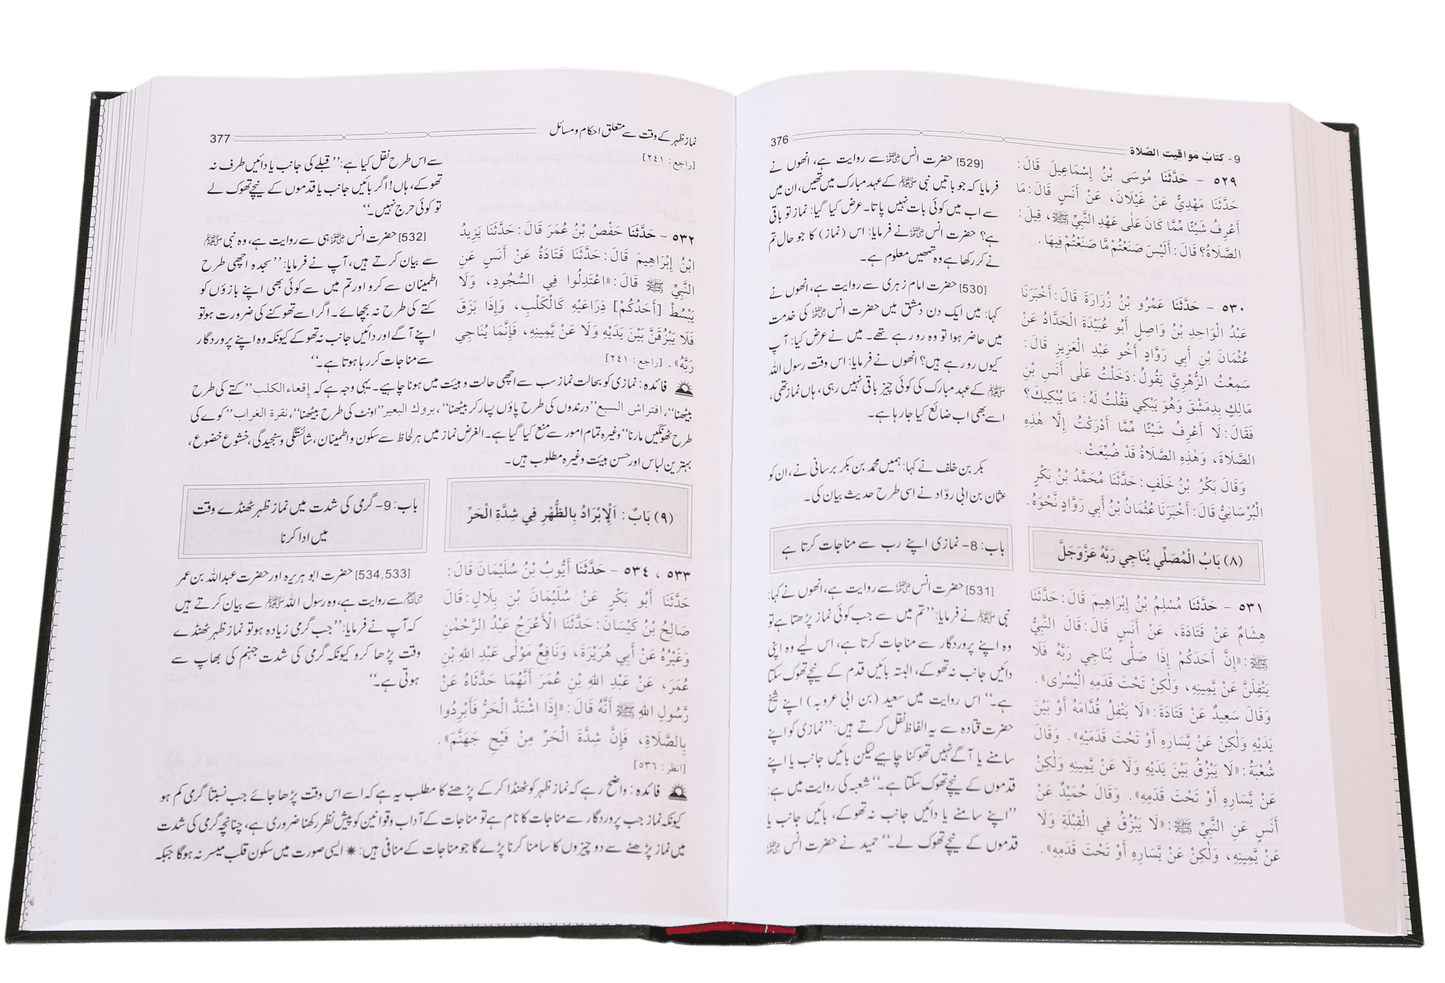 9- كتاب مواقيت الصلاة
376
٥٢٩ - حَدَّثَنَا مُوسَى بْنُ إِسْمَاعِيلَ قَالَ:
حَدَّثَنَا مَهْدِيٌّ عَنْ غَيْلَانَ، عَنْ أَنَسٍ قَالَ: مَا
أَعْرِفُ شَيْئًا مِّمَّا كَانَ عَلَى عَهْدِ النَّبِيِّ ﷺ، قِيلَ:
الصَّلَاةُ؟ قَالَ: أَلَيْسَ صَنَعْتُمْ مَّا صَنَعْتُمْ فِيهَا.
٥٣٠ - حَدَّثَنَا عَمْرُو بْنُ زُرَارَةَ قَالَ: أَخْبَرَنَا
عَبْدُ الْوَاحِدِ بْنُ وَاصِلٍ أَبُو عُبَيْدَةَ الْحَدَّادُ عَنْ
عُثْمَانَ بْنِ أَبِي رَوَّادٍ أَخُو عَبْدِ الْعَزِيزِ قَالَ:
سَمِعْتُ الزُّهْرِيَّ يَقُولُ: دَخَلْتُ عَلَى أَنَسِ بْنِ
مَالِكٍ بِدِمَشْقَ وَهُوَ يَبْكِي فَقُلْتُ لَهُ: مَا يُبْكِيكَ؟
فَقَالَ: لَا أَعْرِفُ شَيْئًا مِّمَّا أَدْرَكْتُ إِلَّا هٰذِهِ
الصَّلَاةَ، وَهٰذِهِ الصَّلَاةُ قَدْ ضُيِّعَتْ.
وَقَالَ بَكْرُ بْنُ خَلَفٍ: حَدَّثَنَا مُحَمَّدُ بْنُ بَكْرٍ
الْبُرْسَانِيُّ قَالَ: أَخْبَرَنَا عُثْمَانُ بْنُ أَبِي رَوَّادٍ نَّحْوَهُ.
(٨) بَابُ الْمُصَلِّي يُنَاجِي رَبَّهُ عَزَّ وَجَلَّ
٥٣١ - حَدَّثَنَا مُسْلِمُ بْنُ إِبْرَاهِيمَ قَالَ: حَدَّثَنَا
هِشَامٌ عَنْ قَتَادَةَ، عَنْ أَنَسٍ قَالَ: قَالَ النَّبِيُّ
ﷺ: «إِنَّ أَحَدَكُمْ إِذَا صَلَّى يُنَاجِي رَبَّهُ فَلَا
يَتْفِلَنَّ عَنْ يَّمِينِهِ، وَلٰكِنْ تَحْتَ قَدَمِهِ الْيُسْرَى».
وَقَالَ سَعِيدٌ عَنْ قَتَادَةَ: «لَا يَتْفِلُ قُدَّامَهُ أَوْ بَيْنَ
يَدَيْهِ وَلٰكِنْ عَنْ يَّسَارِهِ أَوْ تَحْتَ قَدَمَيْهِ». وَقَالَ
شُعْبَةُ: «لَا يَبْزُقْ بَيْنَ يَدَيْهِ وَلَا عَنْ يَّمِينِهِ وَلٰكِنْ
عَنْ يَّسَارِهِ أَوْ تَحْتَ قَدَمِهِ». وَقَالَ حُمَيْدٌ عَنْ
أَنَسٍ عَنِ النَّبِيِّ ﷺ: «لَا يَبْزُقْ فِي الْقِبْلَةِ وَلَا
عَنْ يَّمِينِهِ، وَلٰكِنْ عَنْ يَّسَارِهِ أَوْ تَحْتَ قَدَمِهِ».
[529] حضرت انس ؓ سے روایت ہے، انھوں نے
فرمایا کہ جو باتیں نبی ﷺ کے عہد مبارک میں تھیں، ان میں
سے اب میں کوئی بات نہیں پاتا۔ عرض کیا گیا: نماز تو باقی
ہے؟ حضرت انس ؓ نے فرمایا: اس (نماز) کا جو حال تم
نے کر رکھا ہے وہ تمھیں معلوم ہے۔
[530] حضرت امام زہری سے روایت ہے، انھوں نے
کہا: میں ایک دن دمشق میں حضرت انس ؓ کی خدمت
میں حاضر ہوا تو وہ رو رہے تھے۔ میں نے عرض کیا: آپ
کیوں رو رہے ہیں؟ انھوں نے فرمایا: اس وقت رسول اللہ
ﷺ کے عہد مبارک کی کوئی چیز باقی نہیں رہی، ہاں نماز تھی،
اسے بھی اب ضائع کیا جا رہا ہے۔
بکر بن خلف نے کہا: ہمیں محمد بن بکر برسانی نے، ان کو
عثمان بن ابی روّاد نے اسی طرح حدیث بیان کی۔
باب: 8- نمازی اپنے رب سے مناجات کرتا ہے
[531] حضرت انس ؓ سے روایت ہے، انھوں نے کہا:
نبی ﷺ نے فرمایا: ”تم میں سے جب کوئی نماز پڑھتا ہے تو
وہ اپنے پروردگار سے مناجات کرتا ہے، اس لیے وہ اپنی
دائیں جانب نہ تھوکے، البتہ بائیں قدم کے نیچے تھوک سکتا
ہے۔“ اس روایت میں سعید (بن ابی عروبہ) اپنے شیخ
حضرت قتادہ سے یہ الفاظ نقل کرتے ہیں: ”نمازی کو اپنے
سامنے یا آگے نہیں تھوکنا چاہیے لیکن بائیں جانب یا اپنے
قدموں کے نیچے تھوک سکتا ہے۔“ شعبہ کی روایت میں ہے:
”اپنے سامنے یا دائیں جانب نہ تھوکے، بائیں جانب یا
قدموں کے نیچے تھوک لے۔“ حمید نے حضرت انس ؓ
نماز ظہر کے وقت سے متعلق احکام و مسائل
377
[راجع: ٢٤١]
٥٣٢ - حَدَّثَنَا حَفْصُ بْنُ عُمَرَ قَالَ: حَدَّثَنَا يَزِيدُ
ابْنُ إِبْرَاهِيمَ قَالَ: حَدَّثَنَا قَتَادَةُ عَنْ أَنَسٍ عَنِ
النَّبِيِّ ﷺ قَالَ: «اعْتَدِلُوا فِي السُّجُودِ، وَلَا
يَبْسُطْ [أَحَدُكُمْ] ذِرَاعَيْهِ كَالْكَلْبِ، وَإِذَا بَزَقَ
فَلَا يَبْزُقَنَّ بَيْنَ يَدَيْهِ وَلَا عَنْ يَّمِينِهِ، فَإِنَّمَا يُنَاجِي
رَبَّهُ». [راجع: ٢٤١]
سے اس طرح نقل کیا ہے: ”قبلے کی جانب یا دائیں طرف نہ
تھوکے، ہاں! اگر بائیں جانب یا قدموں کے نیچے تھوک لے
تو کوئی حرج نہیں۔“
[532] حضرت انس ؓ ہی سے روایت ہے، وہ نبی ﷺ
سے بیان کرتے ہیں، آپ نے فرمایا: ”سجدہ اچھی طرح
اطمینان سے کرو اور تم میں سے کوئی بھی اپنے بازؤں کو
کتے کی طرح نہ بچھائے۔ اگر اسے تھوکنے کی ضرورت ہو تو
اپنے آگے اور دائیں جانب نہ تھوکے کیونکہ وہ اپنے پروردگار
سے مناجات کر رہا ہوتا ہے۔“
فائدہ: نمازی کو بحالت نماز سب سے اچھی حالت و ہیئت میں ہونا چاہیے۔ یہی وجہ ہے کہ إقعاء الکلب ”کتے کی طرح
بیٹھنا“، افتراش السبع ”درندوں کی طرح پاؤں پسار کر بیٹھنا“، بروك البعیر ”اونٹ کی طرح بیٹھنا“، نقرة الغراب ”کوے کی
طرح ٹھونگیں مارنا“ وغیرہ تمام امور سے منع کیا گیا ہے۔ الغرض نماز میں ہر لحاظ سے سکون و اطمینان، شائستگی و سنجیدگی، خشوع خضوع،
بہترین لباس اور حسن ہیئت وغیرہ مطلوب ہیں۔
(٩) بَابٌ: اَلْإِبْرَادُ بِالظُّهْرِ فِي شِدَّةِ الْحَرِّ
باب: 9- گرمی کی شدت میں نماز ظہر ٹھنڈے وقت
میں ادا کرنا
٥٣٣ ، ٥٣٤ - حَدَّثَنَا أَيُّوبُ بْنُ سُلَيْمَانَ قَالَ:
حَدَّثَنَا أَبُو بَكْرٍ عَنْ سُلَيْمَانَ بْنِ بِلَالٍ: قَالَ
صَالِحُ بْنُ كَيْسَانَ: حَدَّثَنَا الْأَعْرَجُ عَبْدُ الرَّحْمٰنِ
وَغَيْرُهُ عَنْ أَبِي هُرَيْرَةَ، وَنَافِعٌ مَوْلَى عَبْدِ اللهِ بْنِ
عُمَرَ، عَنْ عَبْدِ اللهِ بْنِ عُمَرَ أَنَّهُمَا حَدَّثَاهُ عَنْ
رَّسُولِ اللهِ ﷺ أَنَّهُ قَالَ: «إِذَا اشْتَدَّ الْحَرُّ فَأَبْرِدُوا
بِالصَّلَاةِ، فَإِنَّ شِدَّةَ الْحَرِّ مِنْ فَيْحِ جَهَنَّمَ».
[انظر: ٥٣٦]
[534,533] حضرت ابو ہریرہ اور حضرت عبداللہ بن عمر
ؓ سے روایت ہے، وہ رسول اللہ ﷺ سے بیان کرتے ہیں
کہ آپ نے فرمایا: ”جب گرمی زیادہ ہو تو نماز ظہر ٹھنڈے
وقت پڑھا کرو کیونکہ گرمی کی شدت جہنم کی بھاپ سے
ہوتی ہے۔“
فائدہ: واضح رہے کہ نماز ظہر کو ٹھنڈا کر کے پڑھنے کا مطلب یہ ہے کہ اسے اس وقت پڑھا جائے جب نسبتاً گرمی کم ہو
کیونکہ نماز جب پروردگار سے مناجات کا نام ہے تو مناجات کے آداب و قوانین کو پیش نظر رکھنا ضروری ہے، چنانچہ گرمی کی شدت
میں نماز پڑھنے سے دو چیزوں کا سامنا کرنا پڑے گا جو مناجات کے منافی ہیں: ✷ ایسی صورت میں سکون قلب میسر نہ ہو گا جبکہ